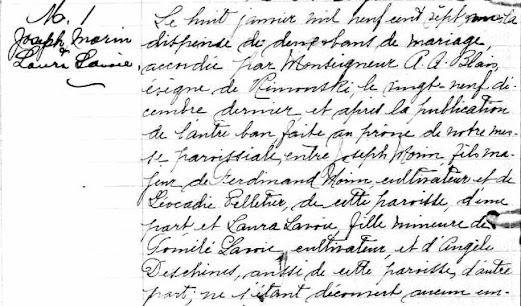 M. 1
Joseph Morin
&
Laura Lavoie
Le huit janvier mil neuf cent sept vu la
dispense de deux bans de mariage
accordée par Monseigneur A. A. Blais
évêque de Rimouski, le vingt-neuf dé-
cembre dernier, et après la publication
de l'autre ban faite au prône de notre mes-
se paroissiale, entre Joseph Morin, fils ma-
jeur de Ferdinand Morin cultivateur et de
Léocadie Pelletier, de cette paroisse, d'une
part, et Laura Lavoie, fille mineure de
Lavoie, cultivateur, et d'Angèle
Deschênes, aussi de cette paroisse, d'autre
part; ne s'étant découvert aucun em-